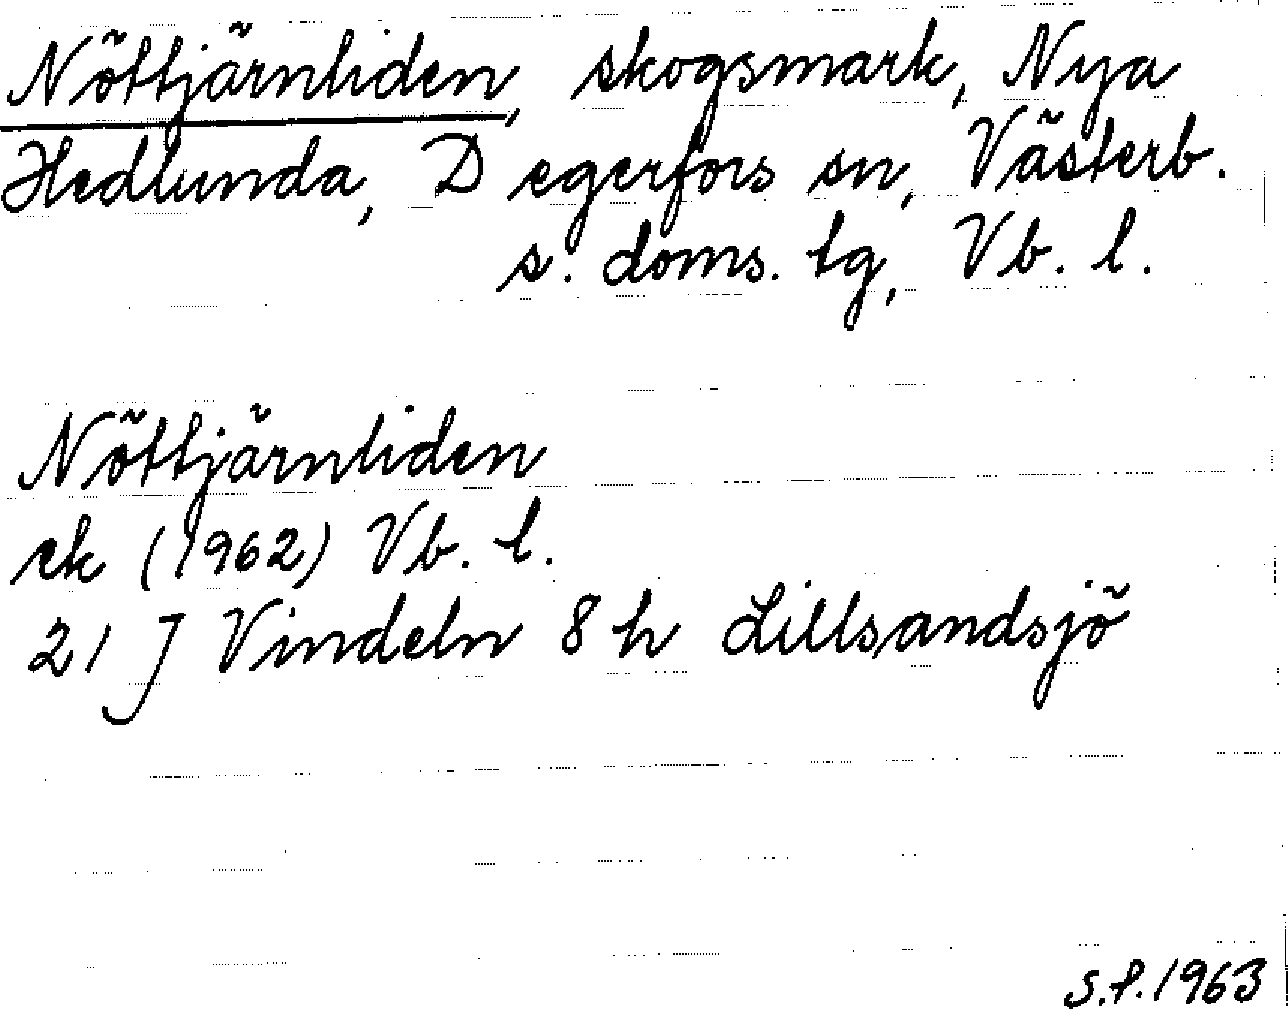 Nöttjärnliden, skogsmark, Nya
Hedlunda, Degerfors sn, Västerb.
s. doms. tg, Vb. l.
Nöttjärnliden
ek (1962) Vb. l.
21 J Vindeln 8 h Lillsandsjö
S.f. 1963